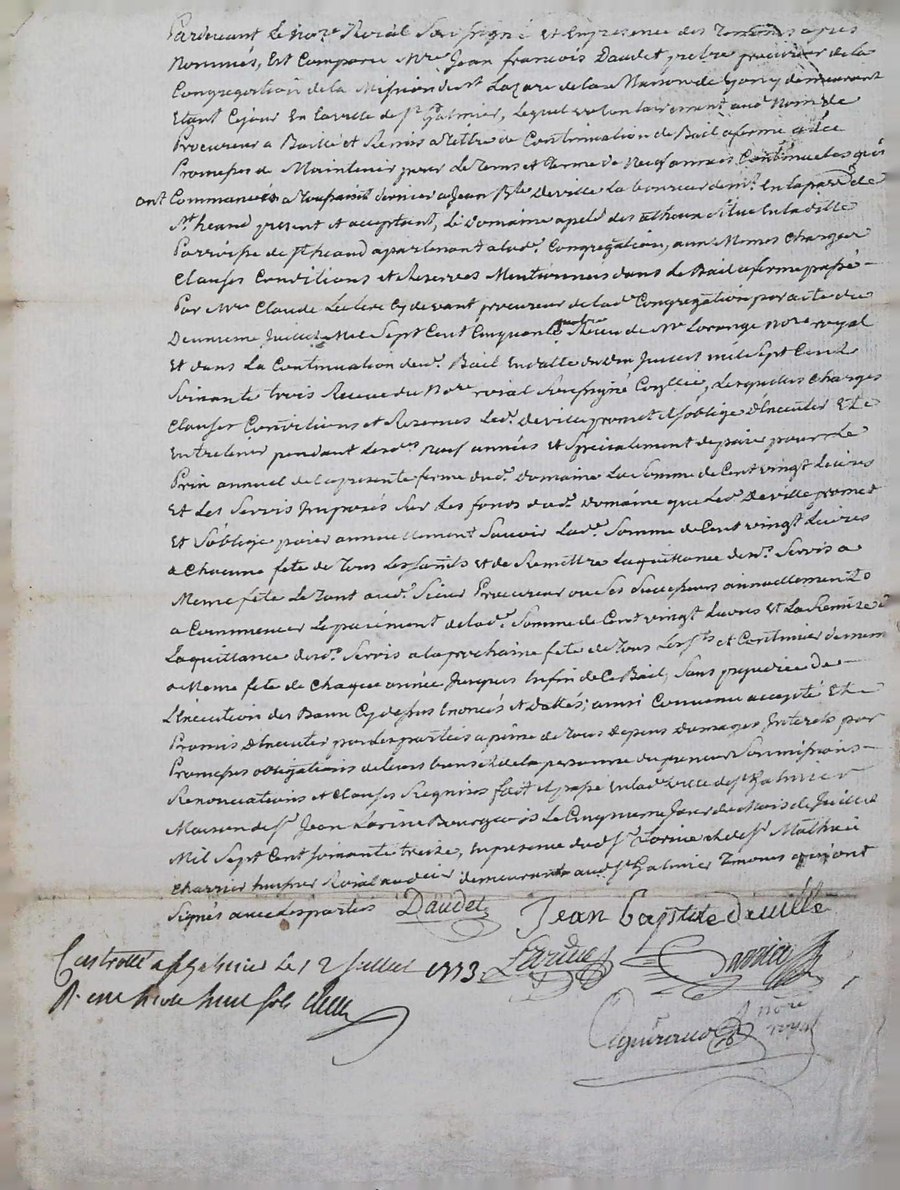 Pardevant Le No.re Roial Soussigné et En presence des Temoins apres
Nommés, Est Comparu M.re Jean françois Daudet, pretre procureur de la
Congregation de la Mission de S.t Lazare de la Maison de Lyon y demeurant
Etant Cejour En la ville de S.t Galmier, Lequel volontairement aud. Nom de
Procureur a Baillé et Remis a titre de Continuation de Bail a ferme avec
Promesses de Maintenir pour Le tems et terme de Neuf années Continuelles qui
ont Commancés a Toussaint dernier a Jean B.te Deville Laboureur dem.t En la parr.e de
S.t heand present et acceptant, Le Domaine apelé des Situé En la ditte
Parroisse de S.t heand apartenant a lad. Congregation, aux Memes Charges
Clauses Conditions et Reserves Mentionnées dans Le Bail a ferme passé
Par M.re Claude Leclerc Cydevant procureur de lad. Congregation par acte du
Deuxieme Juillet Mil Sept Cent Cinquante quatre Receu de M.e Lorange No.re royal
Et dans La Continuation dud. Bail En datte du Juillet mil Sept Cent
Soixante trois Receue du No.re roial Soussigné Lesquelles Charges
Clauses Conditions et Reserves Led. Deville promet et S'oblige D'Executer Et
Entretenir pendant Lesd.es neuf années et Specialement de paier pour Le
Prix annuel de la presente ferme dud. Domaine La Somme de Cent vingt Livres
Et Les Servis Imposés Sur Les fonds dud. Domaine que Led. Deville promet
Et S'oblige paier annuellement Savoir Lad. Somme de Cent vingt Livres
a Chacune fete de Tous Les saints et de Remettre La quittance desd. Servis a
Meme fete Le Tout aud. Sieur Procureur ou Ses Successeurs annuellement
a Commencer Le paiement de lad. Somme de Cent vingt Livres Et La Remise
La quittance desd. Servis a la prochaine fete de Tous Les S.ts et Continuer
a Meme fete de Chaque année Jusques En fin de Ce Bail, Sans prejudice de
L'Execution des Baux Cydessus Enoncés et Dattés; ainsi Convenu accepté Et
Promis D'Executer par Les parties a peine de Tous Depens Domages Interets par
Promesses obligations de leurs biens et de la personne du preneur Soumissions
Renonciations et Clauses Requises fait et passé En lad. ville de S.t Galmier
Maison de S.r Jean Bourgeois Le Cinquieme Jour du Mois de Juillet
Mil Sept Cent Soixante treize, En presence dud. S.r et de S.r Mathieu
Charrier huissier Roial demeurants aud. S.t Galmier Temoins qui ont
Signés avec Les parties Daudet
Jean Baptiste deville
Controllé a S.t Galmier le 12 Juillet 1773.
no.re
royal